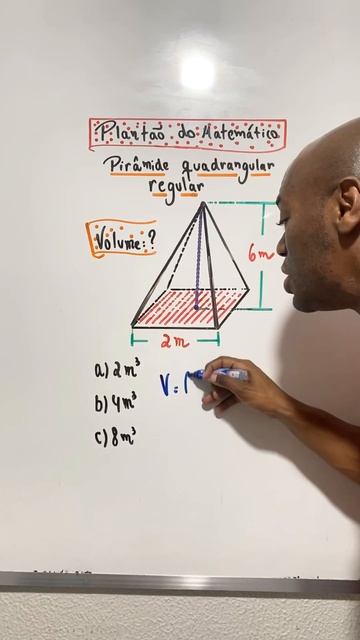 Plantão do Matemático
Pirâmide quadrangular
regular
Volume:?
6m
2m
a) 2m³
b) 4m³
c) 8m³
V =